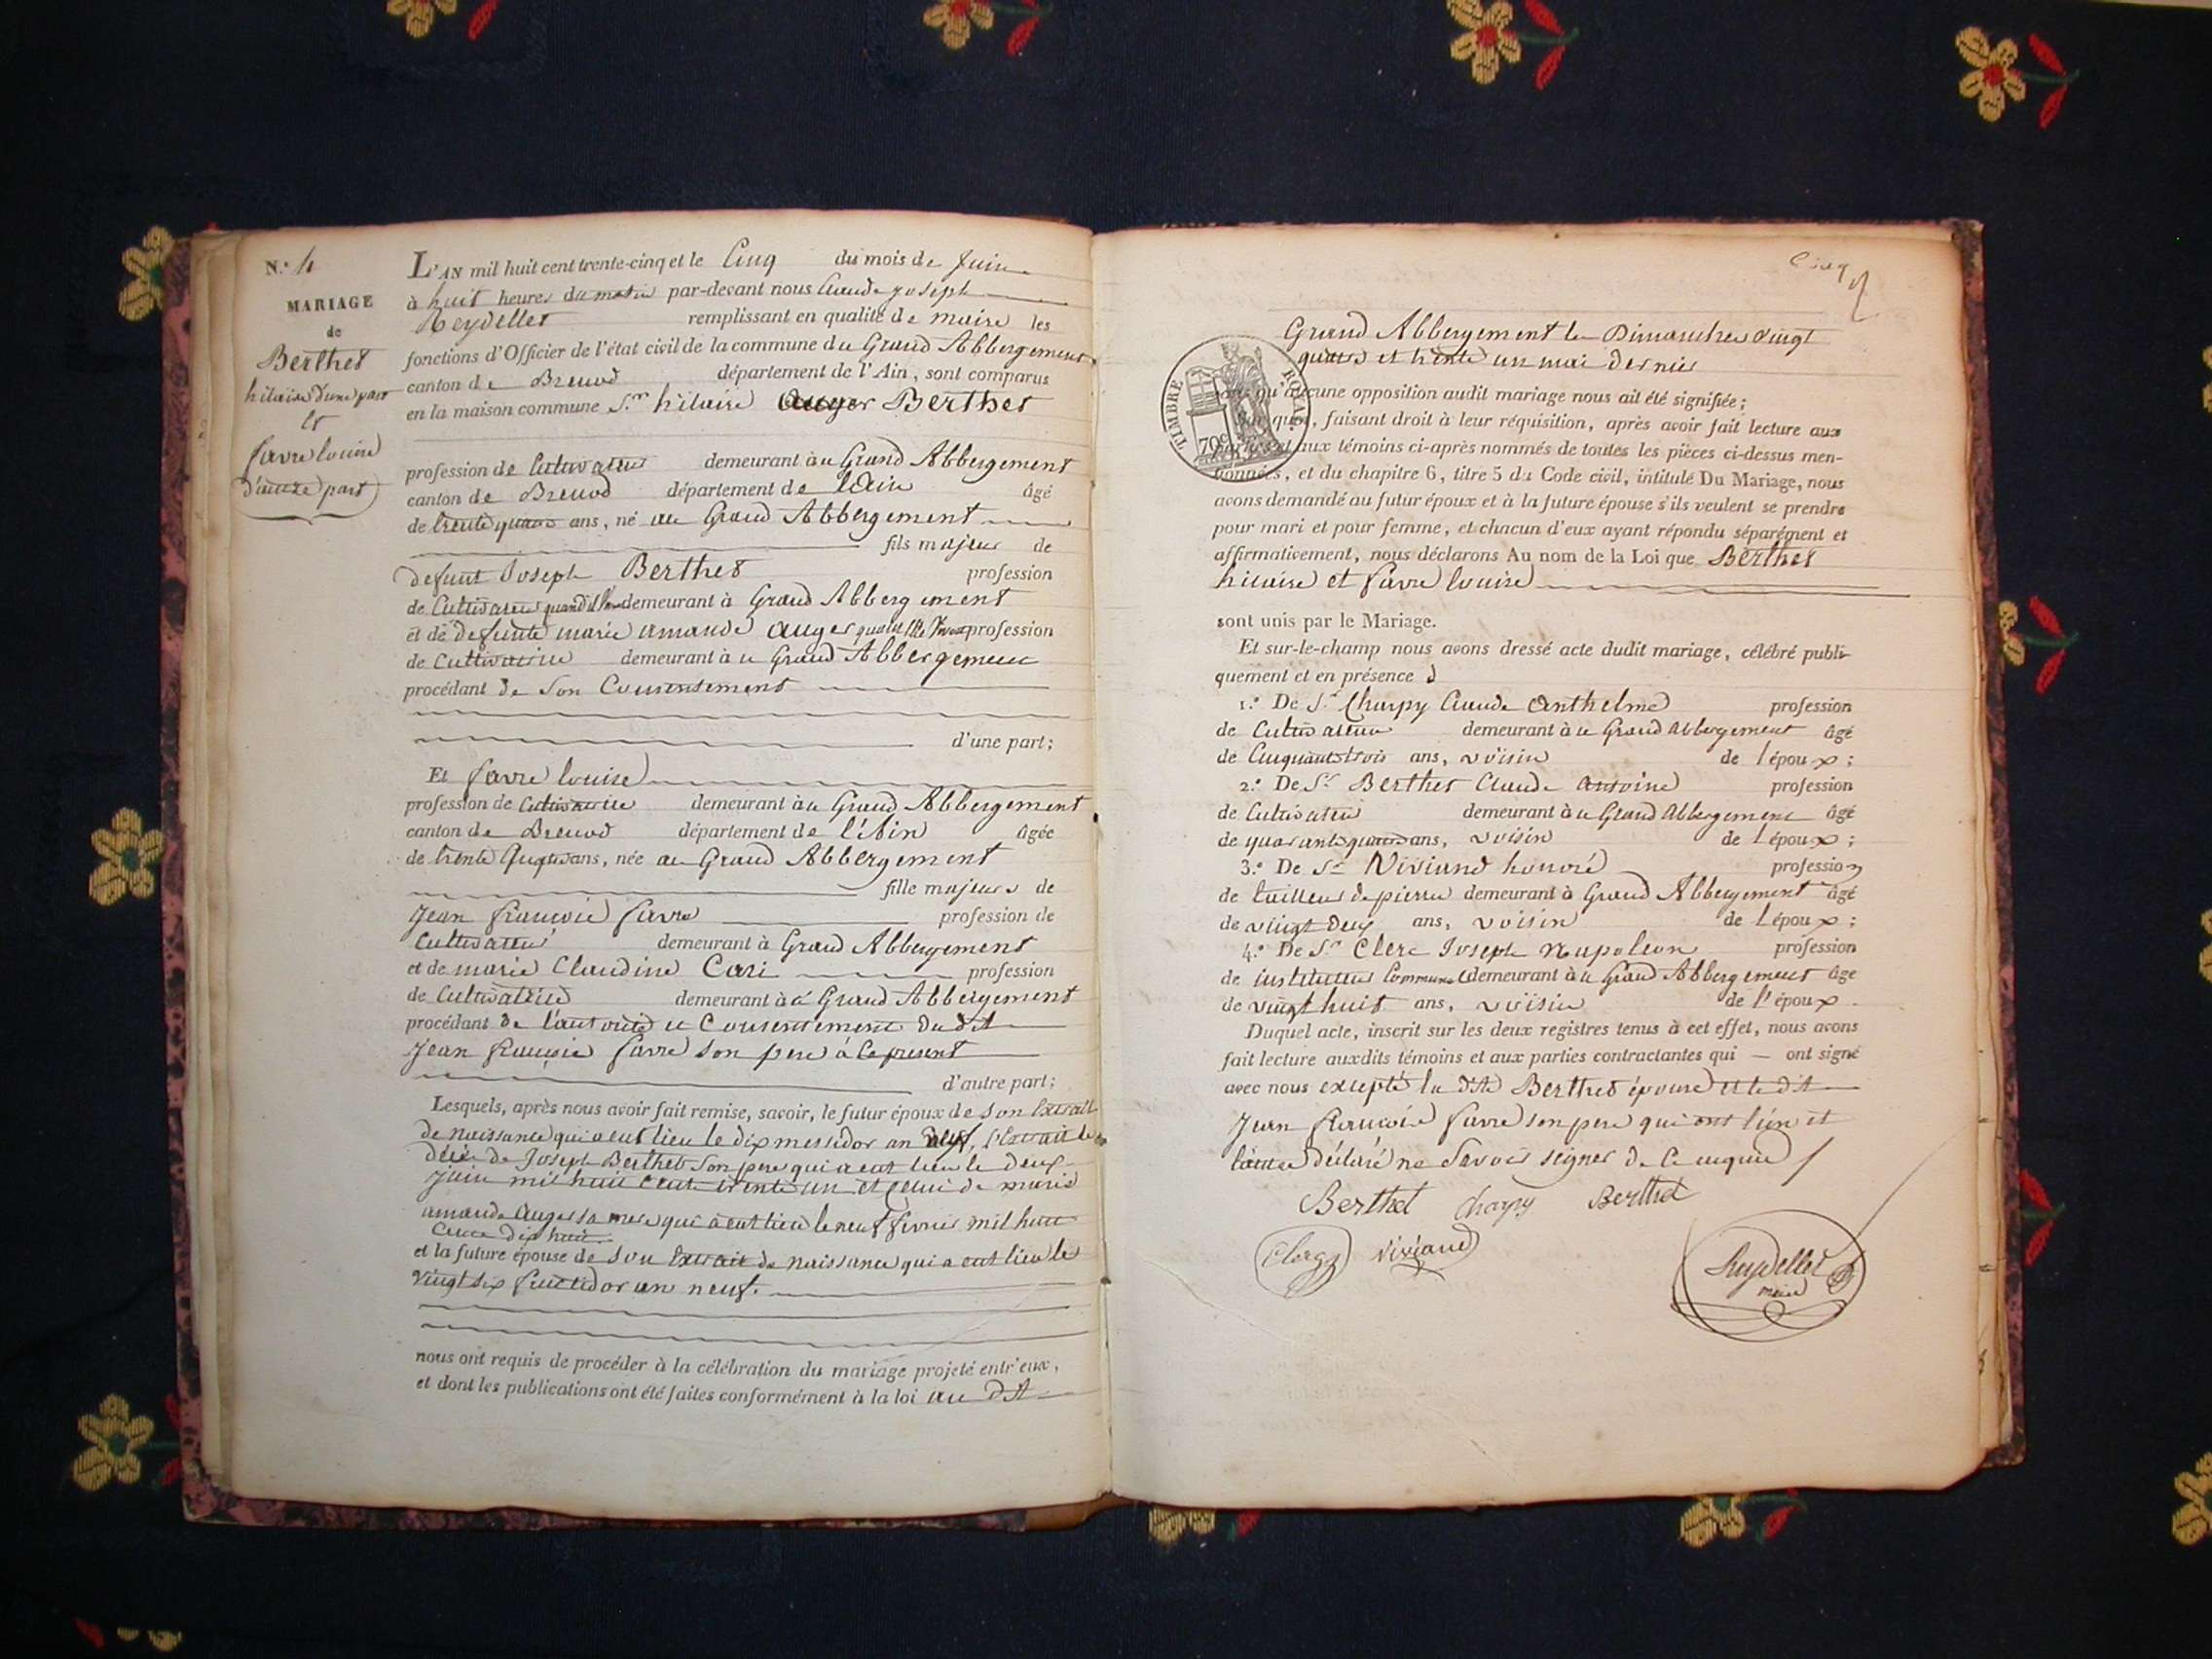 N.° 4
MARIAGE
de
Berthet
hilaire d'une part
et
favre louise
d'autre part
L'AN mil huit cent trente-cinq et le Cinq du mois de Juin
à huit heures du matin par-devant nous Claude joseph
Reydellet remplissant en qualité de maire les
fonctions d'Officier de l'état civil de la commune du Grand Abbergement
canton de Brenod département de l'Ain, sont comparus
en la maison commune S.r hilaire Berthet
profession de Cultivateur demeurant à u Grand Abbergement
canton de Brenod département de lain âgé
de trente quatre ans, né au Grand Abbergement
fils majeur de
defunt Joseph Berthet profession
de Cultivateur quand il demeurant à Grand Abbergement
et de defunte marie amande auger quand elle vivait profession
de Cultivatrice demeurant à u Grand Abbergement
procédant de Son Consentement
d'une part;
Et favre louise
profession de Cultivatrice demeurant à u Grand Abbergement
canton de Brenod département de l'Ain âgée
de trente quatre ans, née au Grand Abbergement
fille majeure de
Jean françois favre profession de
Cultivateur demeurant à Grand Abbergement
et de marie Claudine Cari profession
de Cultivatrice demeurant à Grand Abbergement
procédant de l'autorité et Consentement dudit
Jean françois favre son pere à ce présent
d'autre part;
Lesquels, après nous avoir fait remise, savoir, le futur époux de son Extrait
de naissance qui a eut lieu le dix messidor an neuf, l'Extrait de
décès de Joseph Berthet Son pere qui a eut lieu le deux
juin mil huit Cent trente un et Celui de marie
amande auger sa mere qui a eut lieu le neuf fevrier mil huit
Cent dix huit
et la future épouse de Son Extrait de naissance qui a eut lieu le
vingt six fructidor an neuf.
nous ont requis de procéder à la célébration du mariage projeté entr'eux,
et dont les publications ont été faites conformément à la loi au dit
Cinq
Grand Abbergement les Dimanches vingt
quatre et trente un mai dernier
TIMBRE ROYAL
70c
qu'aucune opposition audit mariage nous ait été signifiée;
quoi, faisant droit à leur réquisition, après avoir fait lecture aux
parties et aux témoins ci-après nommés de toutes les pièces ci-dessus men-
tionnées, et du chapitre 6, titre 5 du Code civil, intitulé Du Mariage, nous
avons demandé au futur époux et à la future épouse s'ils veulent se prendre
pour mari et pour femme, et chacun d'eux ayant répondu séparément et
affirmativement, nous déclarons Au nom de la Loi que Berthet
hilaire et favre louise
sont unis par le Mariage.
Et sur-le-champ nous avons dressé acte dudit mariage, célébré publi-
quement et en présence
1.° De S.r Charpy Claude Anthelme profession
de Cultivateur demeurant à u Grand Abbergement âgé
de Cinquante trois ans, voisin de l'époux;
2.° De S.r Berthet Claude Antoine profession
de Cultivateur demeurant à u Grand Abbergement âgé
de quarante quatre ans, voisin de l'époux;
3.° De S.r Viviand honoré profession
de tailleur de pierre demeurant à Grand Abbergement âgé
de vingt deux ans, voisin de l'époux;
4.° De S.r Clerc Joseph Napoleon profession
de instituteur Communal demeurant à u Grand Abbergement âgé
de vingt huit ans, voisin de l'époux.
Duquel acte, inscrit sur les deux registres tenus à cet effet, nous avons
fait lecture auxdits témoins et aux parties contractantes qui — ont signé
avec nous excepté la dite Berthet épouse et le dit
Jean françois favre son pere qui ont l'un et
l'autre déclaré ne Savoir signer de Ce enquis
Berthet Charpy Berthet
Clerc Viviand
Reydellet
maire